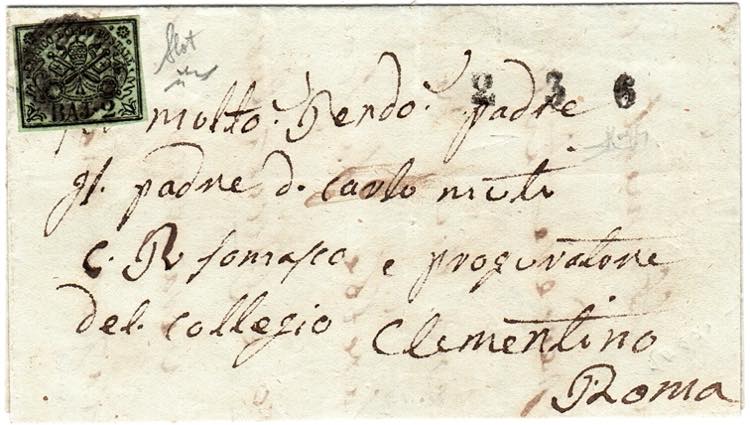 FRANCO BOLLO POSTALE
BAJ. 2
2 3 6
molto: Rendo: padre
il padre d. carlo muti
C. R somasco e procuratore
del collegio Clementino
Roma